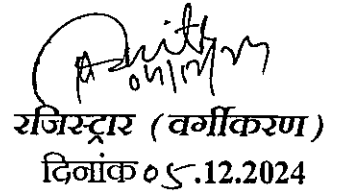 रजिस्ट्रार (वर्गीकरण)
दिनांक 05.12.2024